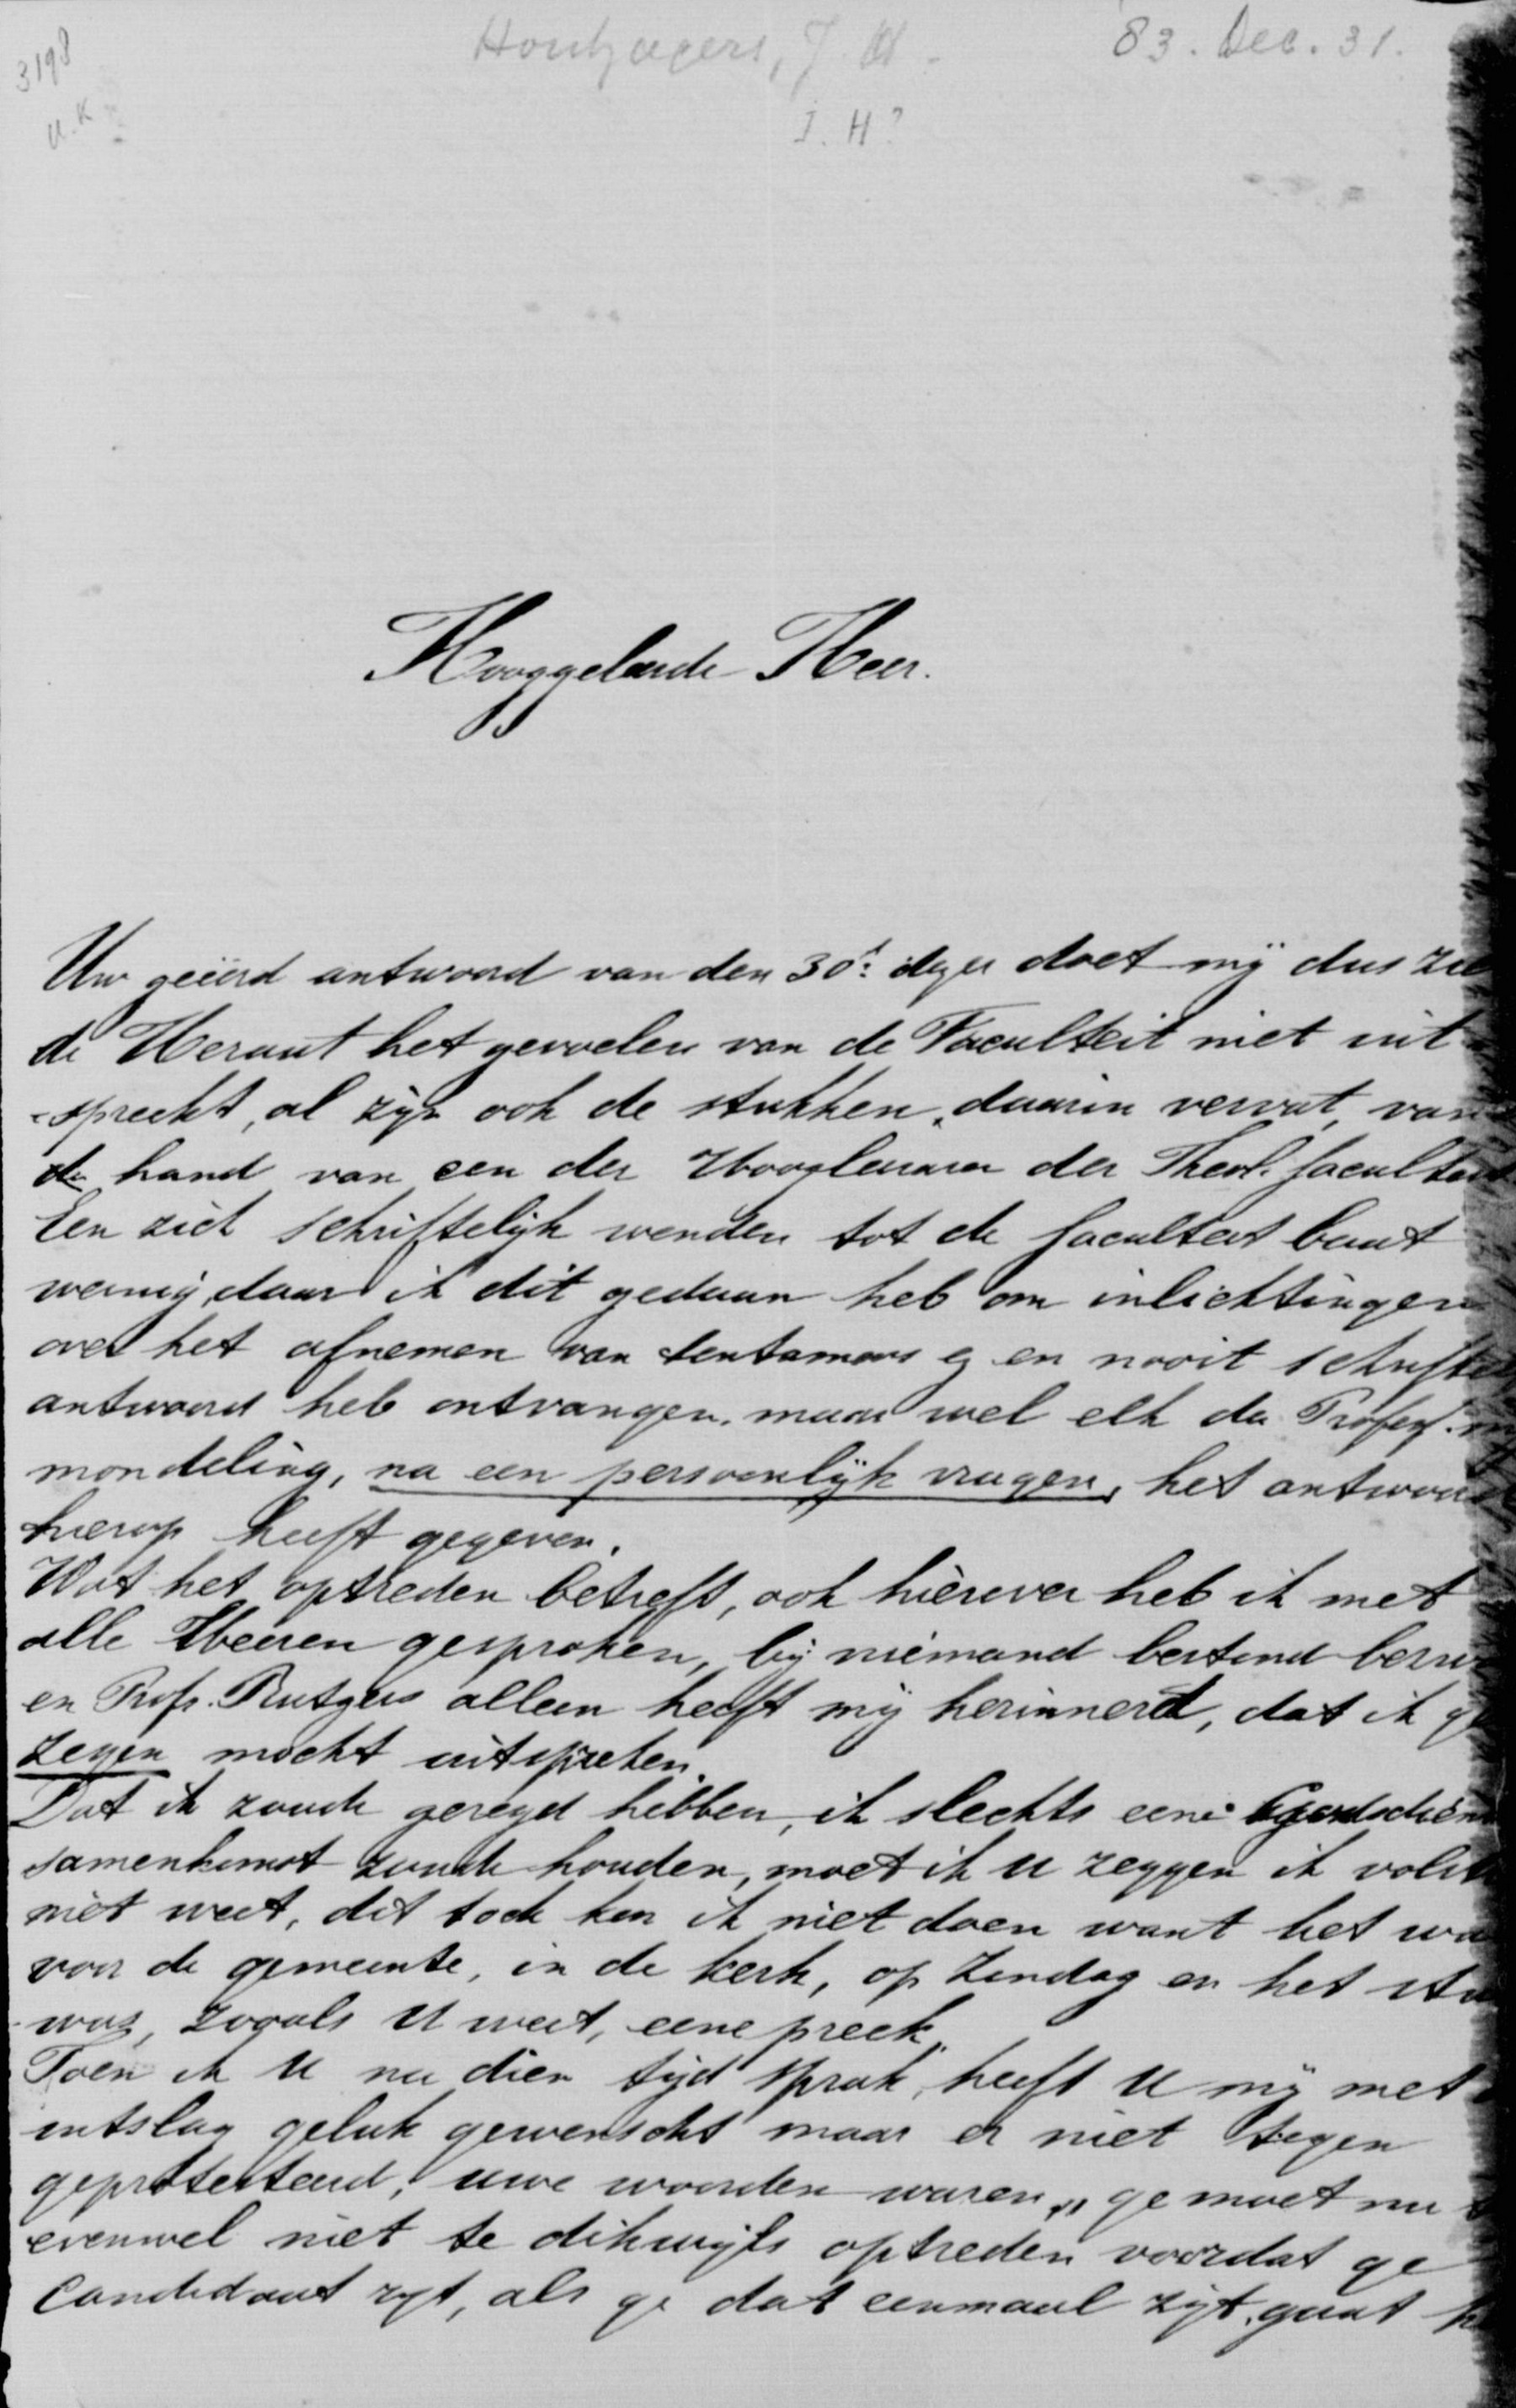 3198
Houtzagers, J. H.
83. Dec. 31.
J. H?
Hooggeleerde Heer.
Uw geëerd antwoord van den 30e dezer doet mÿ dus zie
de Heraut het gevoelen van de Faculteit niet uit
-spreekt, al zijn ook de stukken, daarin vervat, van
de hand van een der Hoogleeraren der Theol. faculteit
Een zich schriftelijk wenden tot de faculteit baat
weinig, daar ik dit gedaan heb om inlichtingen
over het afnemen van tentamens en nooit schrifte
antwoord heb ontvangen, maar wel elk der Profess.
mondeling, na een persoonlijk vragen, het antwoord
hierop heeft gegeven.
Wat het optreden betreft, ook hierover heb ik met
alle Heeren gesproken, bij niemand bestond bezw
en Prof. Rutgers alleen heeft mij herinnerd, dat ik g
zegen mocht uitspreken.
Dat ik zoude gezegd hebben, ik slechts eene
samenkomst zoude houden, moet ik U zeggen ik vols
niet weet, dit toch kon ik niet doen want het wa
voor de gemeente, in de kerk, op Zondag en het stu
was, zooals U weet, eene preek.
Toen ik U na dien tijd sprak, heeft U mij met
uitslag geluk gewenscht maar er niet tegen
geprotesteerd, uwe woorden waren, „ge moet nu
evenwel niet te dikwijls optreden voordat ge
Candidaat zijt, als ge dat eenmaal zijt, gaat h